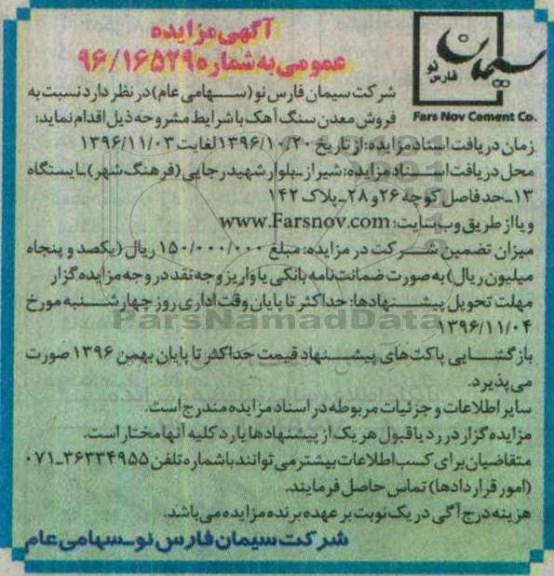 آگهی مزایده
عمومی به شماره ۹۶/۱۶۵۲۹
سیمان
فارس نو
Fars Nov Cement Co.
شرکت سیمان فارس نو (سهامی عام) در نظر دارد نسبت به
فروش معدن سنگ آهک با شرایط مشروحه ذیل اقدام نماید:
زمان دریافت اسناد مزایده: از تاریخ ۱۳۹۶/۱۰/۲۰ لغایت ۱۳۹۶/۱۱/۰۳
محل دریافت اسناد مزایده: شیراز-بلوار شهید رجایی (فرهنگ شهر)-ایستگاه
۱۳-حدفاصل کوچه ۲۶ و ۲۸-پلاک ۱۴۲
و یا از طریق وب سایت: www.Farsnov.com
میزان تضمین شرکت در مزایده: مبلغ ۱۵۰/۰۰۰/۰۰۰ ریال (یکصد و پنجاه
میلیون ریال) به صورت ضمانت نامه بانکی یا واریز وجه نقد در وجه مزایده گزار
مهلت تحویل پیشنهادها: حداکثر تا پایان وقت اداری روز چهارشنبه مورخ
۱۳۹۶/۱۱/۰۴
ParsNamadData
بازگشایی پاکت های پیشنهاد قیمت حداکثر تا پایان بهمن ۱۳۹۶ صورت
می پذیرد.
سایر اطلاعات و جزئیات مربوطه در اسناد مزایده مندرج است.
مزایده گزار در رد یا قبول هر یک از پیشنهادها یا رد کلیه آنها مختار است.
متقاضیان برای کسب اطلاعات بیشتر می توانند با شماره تلفن ۳۶۳۳۴۹۵۵-۰۷۱
(امور قراردادها) تماس حاصل فرمایند.
هزینه درج آگی در یک نوبت بر عهده برنده مزایده می باشد.
شرکت سیمان فارس نو-سهامی عام